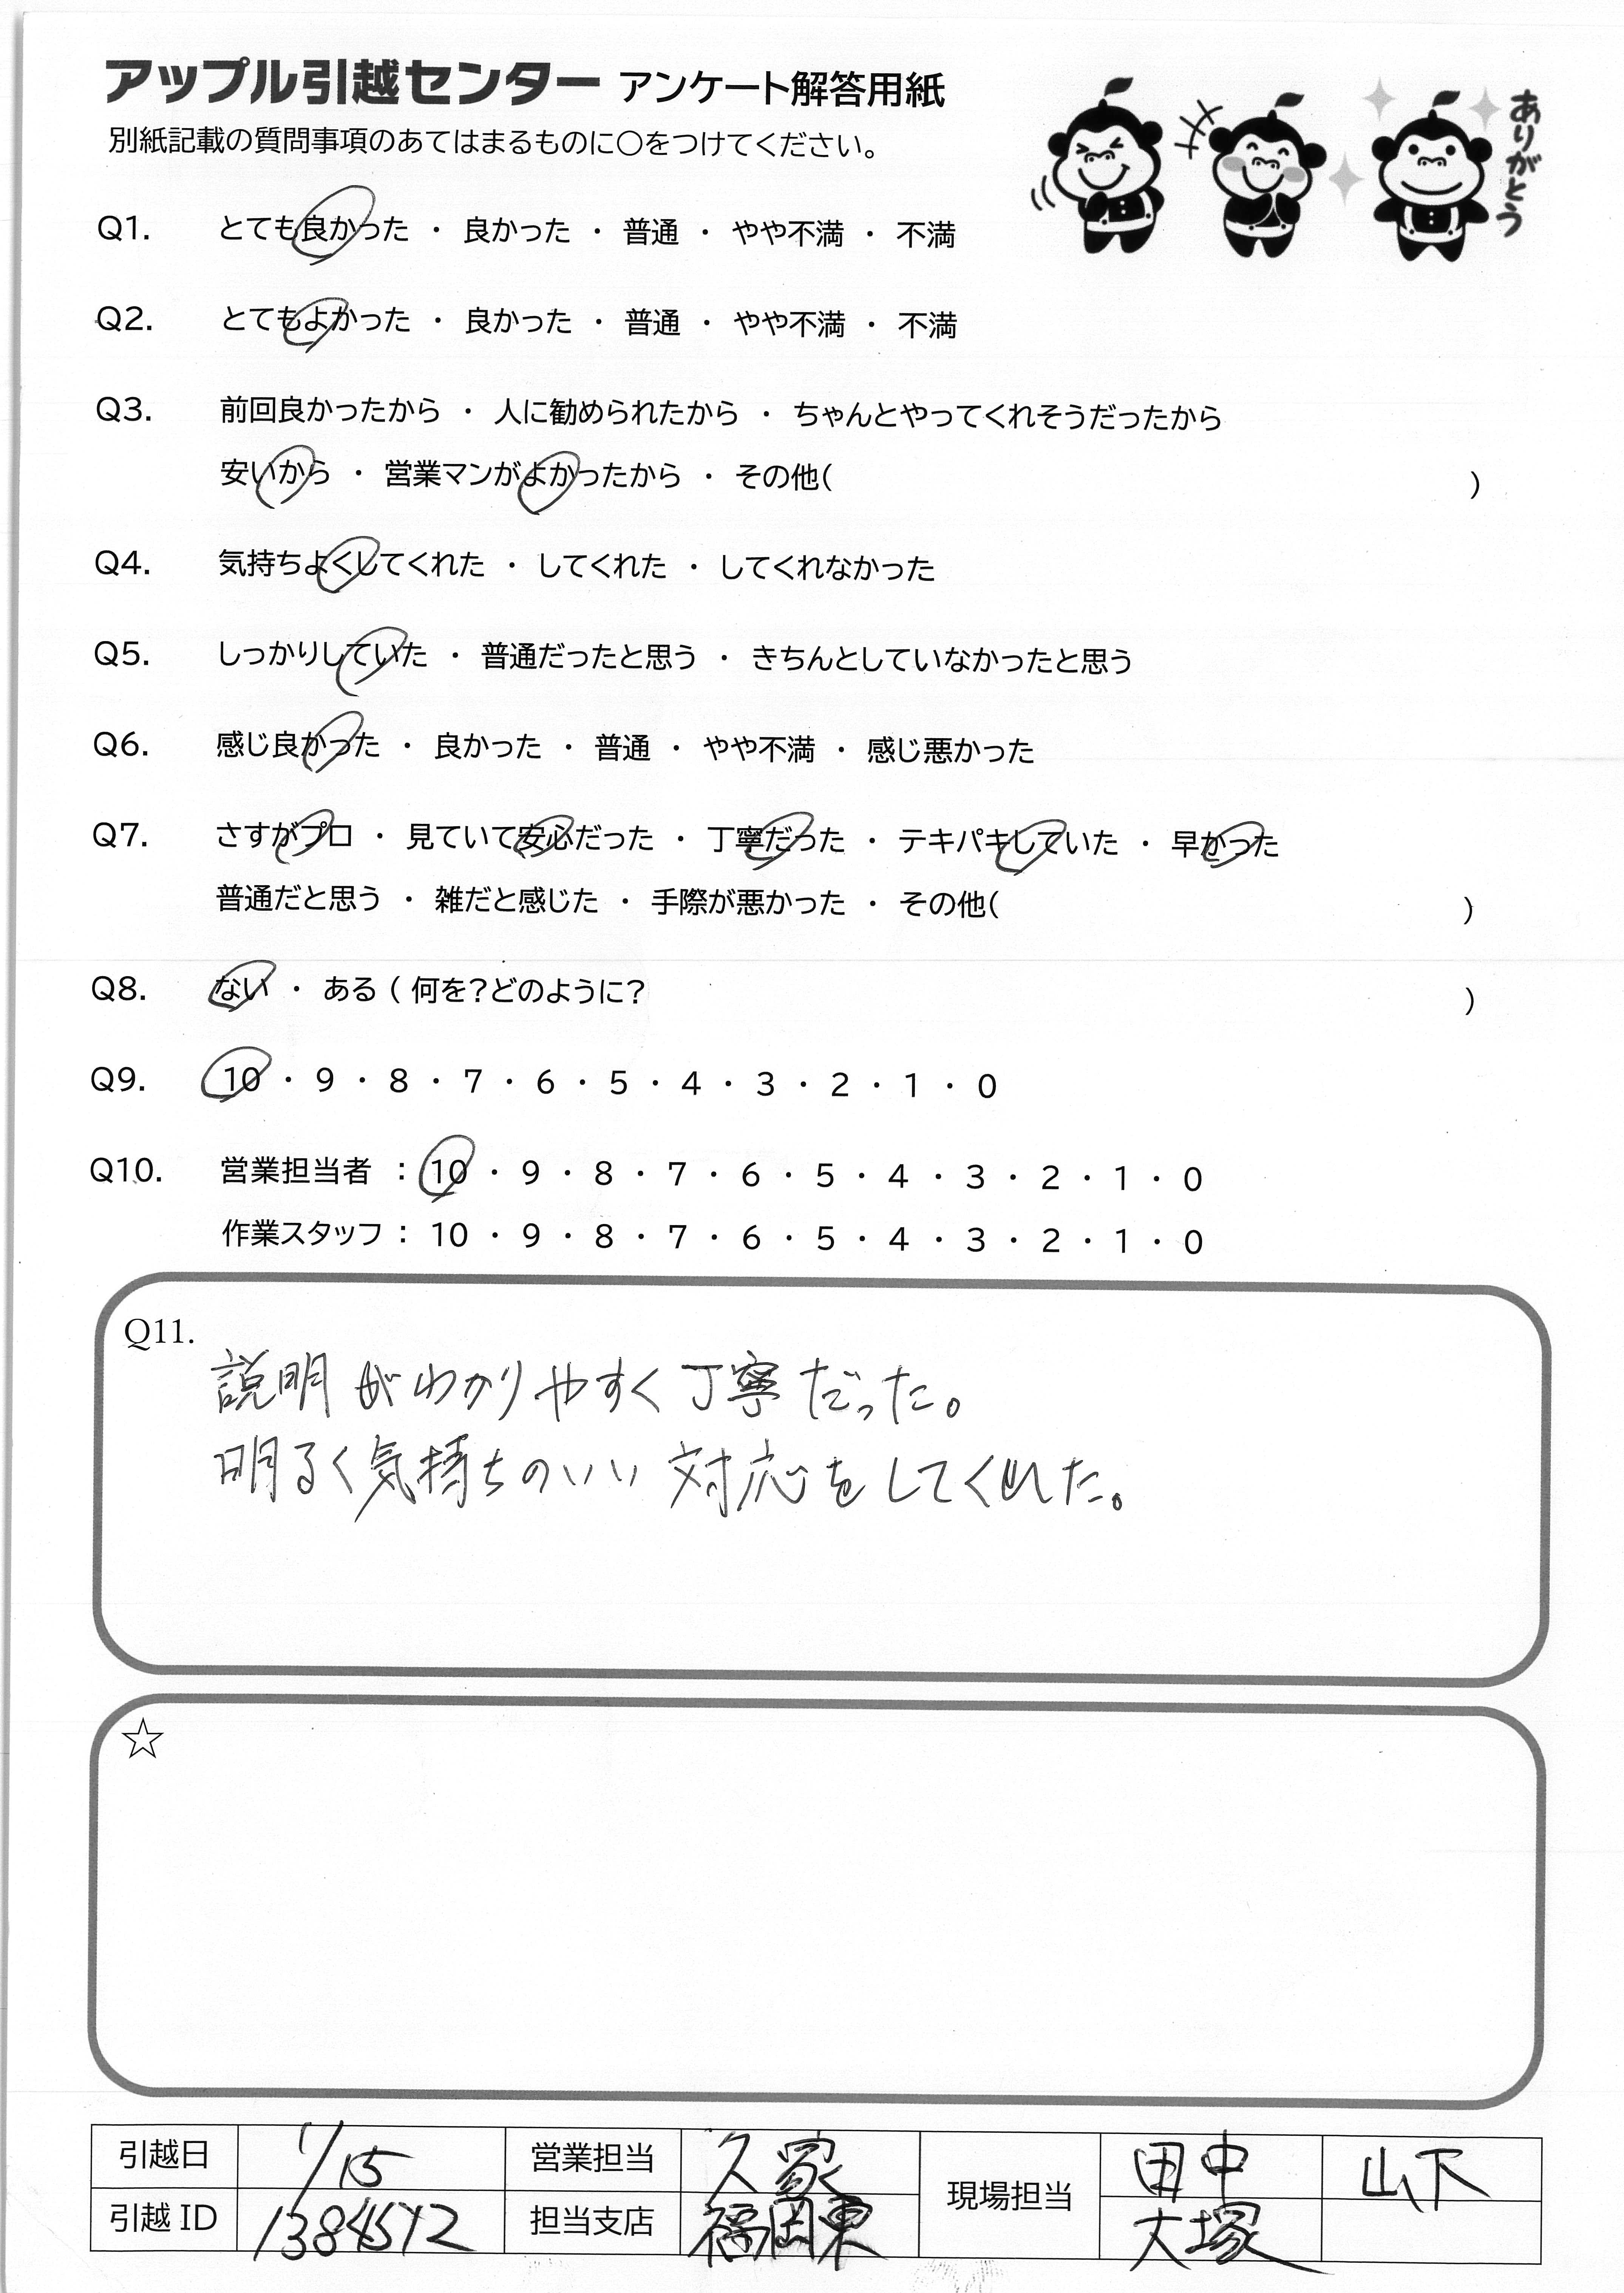 アップル引越センター アンケート解答用紙
ありがとう
別紙記載の質問事項のあてはまるものに○をつけてください。
Q1. とても良かった ・ 良かった ・ 普通 ・ やや不満 ・ 不満
Q2. とてもよかった ・ 良かった ・ 普通 ・ やや不満 ・ 不満
Q3. 前回良かったから ・ 人に勧められたから ・ ちゃんとやってくれそうだったから
安いから ・ 営業マンがよかったから ・ その他( )
Q4. 気持ちよくしてくれた ・ してくれた ・ してくれなかった
Q5. しっかりしていた ・ 普通だったと思う ・ きちんとしていなかったと思う
Q6. 感じ良かった ・ 良かった ・ 普通 ・ やや不満 ・ 感じ悪かった
Q7. さすがプロ ・ 見ていて安心だった ・ 丁寧だった ・ テキパキしていた ・ 早かった
普通だと思う ・ 雑だと感じた ・ 手際が悪かった ・ その他( )
Q8. ない ・ ある ( 何を?どのように? )
Q9. 10 ・ 9 ・ 8 ・ 7 ・ 6 ・ 5 ・ 4 ・ 3 ・ 2 ・ 1 ・ 0
Q10. 営業担当者 : 10 ・ 9 ・ 8 ・ 7 ・ 6 ・ 5 ・ 4 ・ 3 ・ 2 ・ 1 ・ 0
作業スタッフ : 10 ・ 9 ・ 8 ・ 7 ・ 6 ・ 5 ・ 4 ・ 3 ・ 2 ・ 1 ・ 0
Q11.
説明がわかりやすく丁寧だった。
明るく気持ちのいい対応をしてくれた。
☆
引越日 1/15 営業担当 久冢 現場担当 田中 山下
引越ID 1384512 担当支店 福岡東 大塚